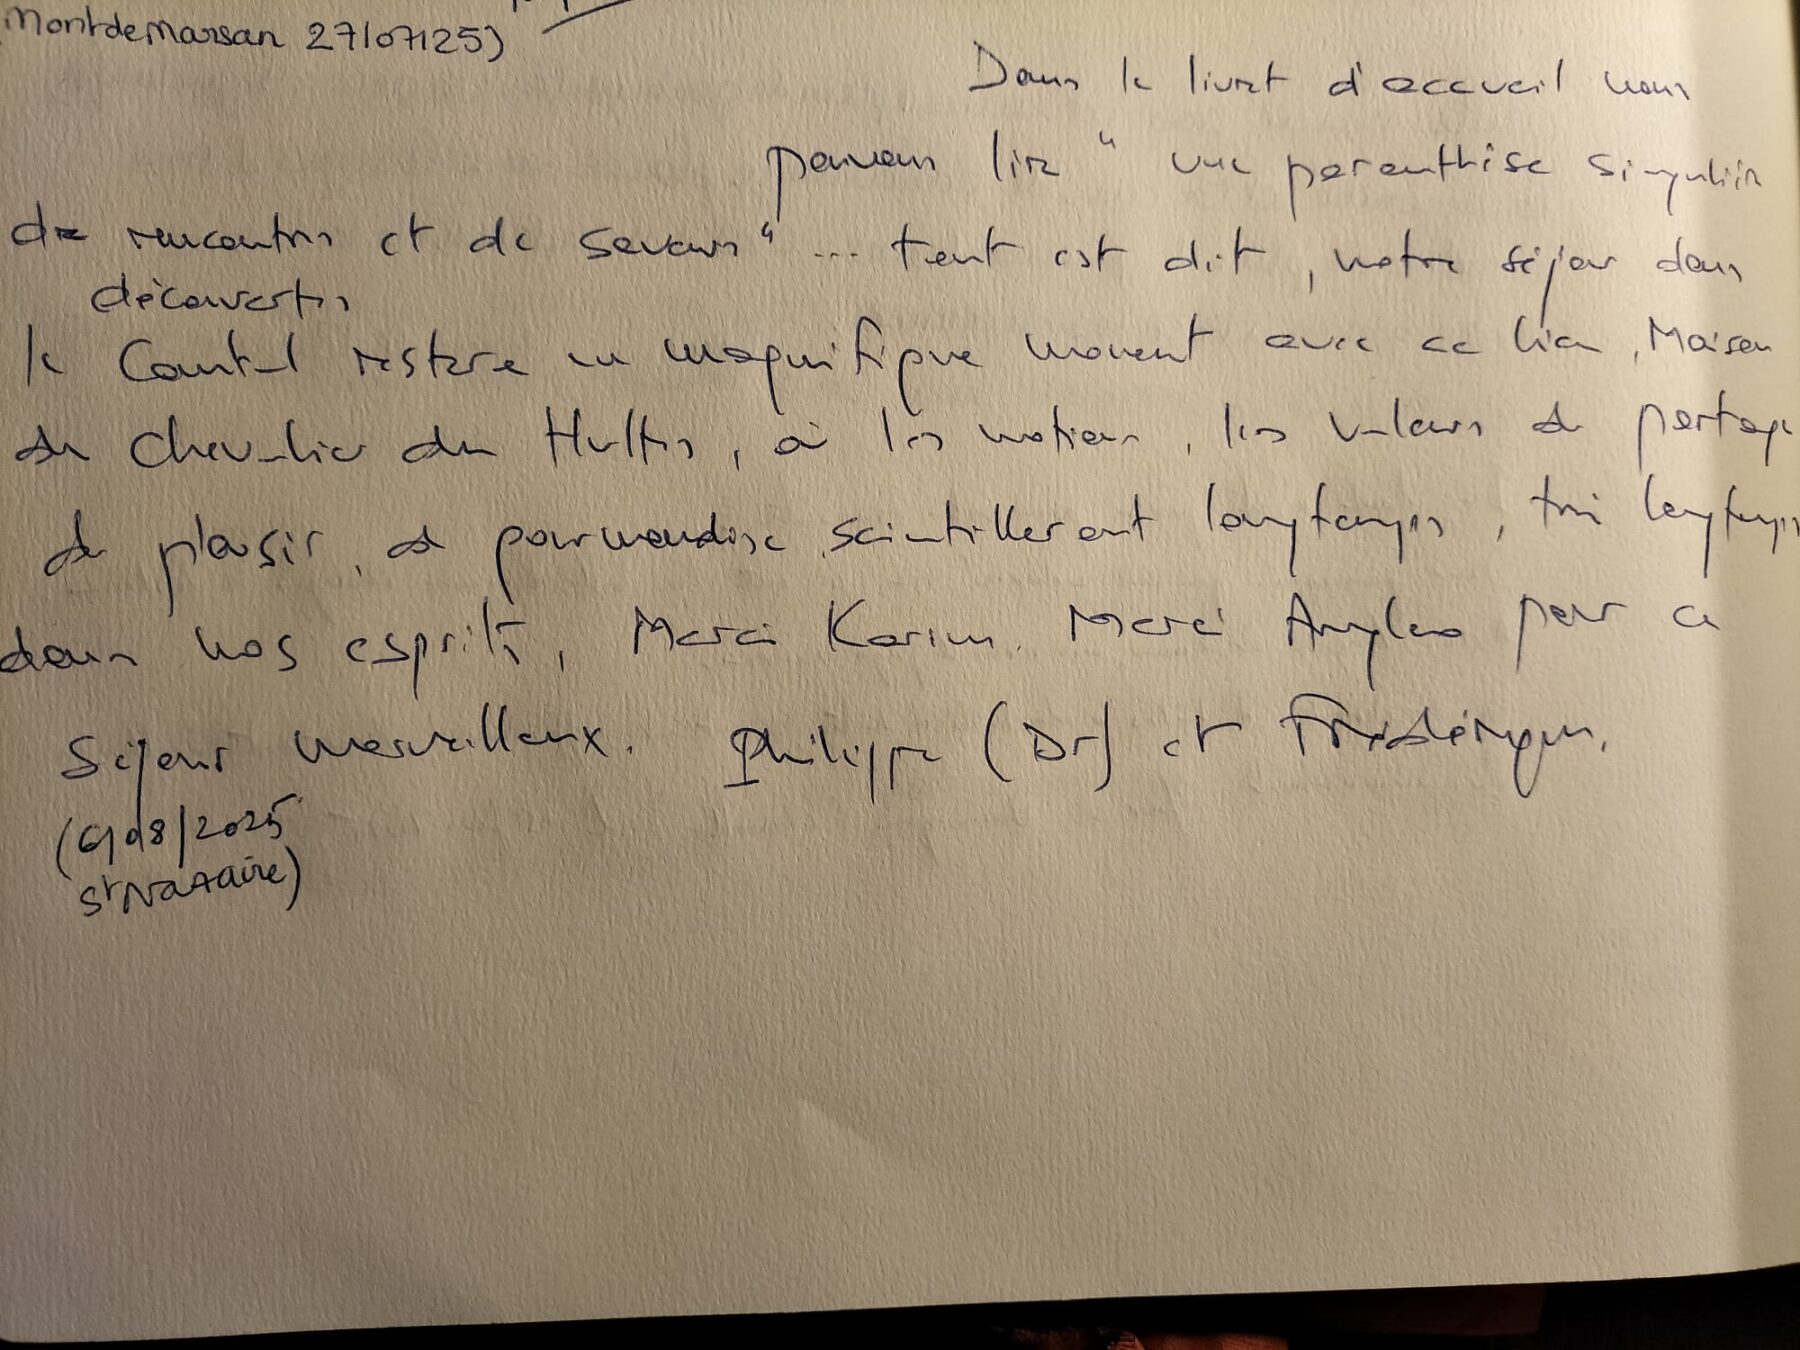 Mont de Marsan 27/07/25)
Dans le livret d'accueil nous
pouvons lire " une parenthèse singulière
de rencontres et de saveurs" ... tout est dit, notre séjour dans
découvertes
le Cantal restera un magnifique moment avec ce lieu, Maison
du Chevalier des Huttes, où les notions, les valeurs de partage
de plaisir, de gourmandise scintilleront longtemps, très longtemps
dans nos esprits, Merci Karim. Merci pour ce
Séjour merveilleux. Philippe (Dr) et Frédérique.
(6/08/2025
St Nazaire)